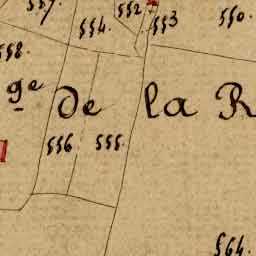 557. 552 553 550.
554.
558.
ge de la R
556 555.
564.